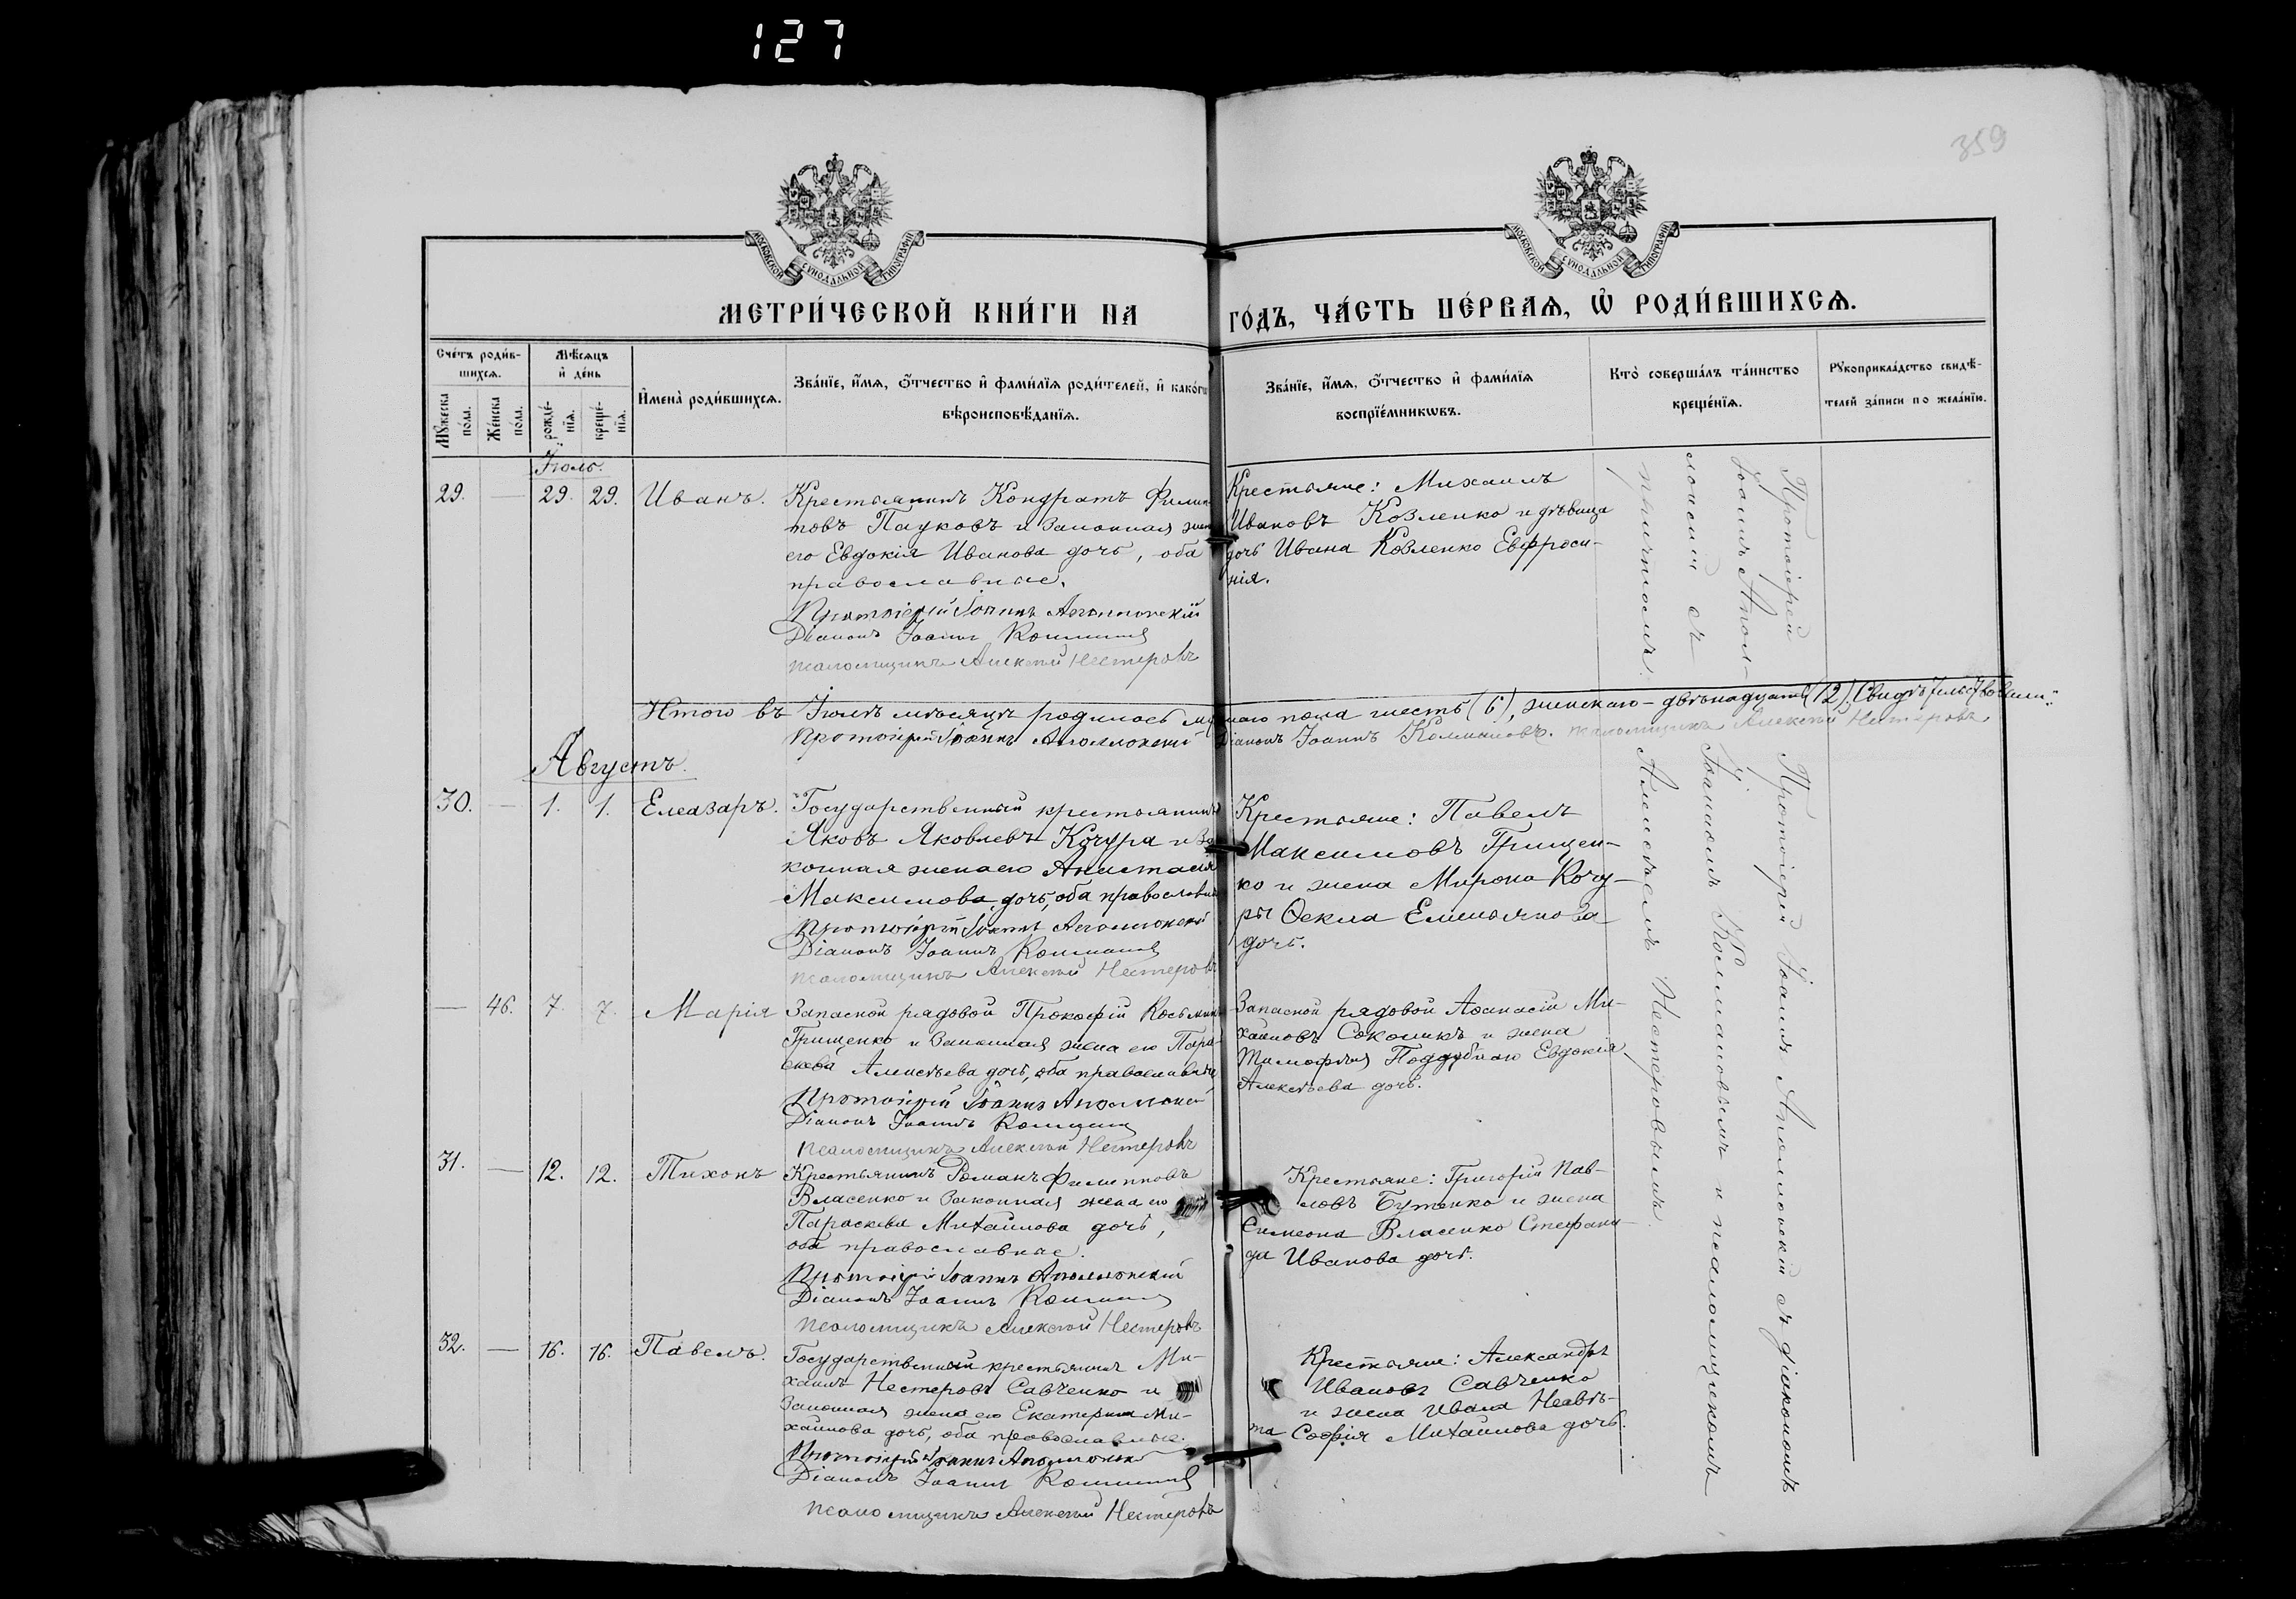 127
359
МОСКОВСКОЙ СѴНОДАЛЬНОЙ ТИПОГРАФІИ
МОСКОВСКОЙ СѴНОДАЛЬНОЙ ТИПОГРАФІИ
МЕТРИ́ЧЕСКОЙ КНИ́ГИ НА ГО́ДЪ, ЧА́СТЬ ПЕ́РВАѦ, Ѡ҆ РОДИ́ВШИХСѦ.
Сче́тъ роди́в-
шихсѧ.
Мꙋ́жеска по́ла.
Же́нска по́ла.
Мѣ́сѧцъ
и҆ де́нь
рожде́-
нїѧ.
креще́-
нїѧ.
И҆мена̀ роди́вшихсѧ.
Зва́нїе, и҆́мѧ, ѻ҆́тчество и҆ фами́лїѧ роди́телей, и҆ како́гѡ
вѣроисповѣ́данїѧ.
Зва́нїе, и҆́мѧ, ѻ҆́тчество и҆ фами́лїѧ
воспрїе́мникѡвъ.
Кто̀ соверша́лъ та́инство
креще́нїѧ.
Рꙋкоприкла́дство свидѣ́-
телей за́писи по жела́нїю.
Іюль.
29. — 29. 29. Иванъ.
Крестьянинъ Кондратъ Филип-
повъ Пауковъ и законная жен
его Евдокія Ивановa дочь, оба
православные.
Протоіерей Іоаннъ Аполлонскій
Діаконъ Іоаннъ Колмановъ
псаломщикъ Алексѣй Нестеровъ
Крестьяне: Михаилъ
Ивановъ Козленко и дѣвица
дочь Ивана Козленко Евфроси-
нія.
Протоіерей
Іоаннъ Апол-
лонскій съ
причтомъ.
Итого въ Іюлѣ мѣсяцѣ родилось мужскаго пола шесть (6), женскаго – двѣнадцать (12). Свидѣтельствовали:
Протоіерей Іоаннъ Аполлонскій Діаконъ Іоаннъ Колмановъ. псаломщикъ Алексѣй Нестеровъ
Августъ.
30. — 1. 1. Елеазаръ.
Государственный крестьянинъ
Яковъ Яковлевъ Кочура и за
конная жена его Анастасія
Максимова дочь, оба православн
Протоіерей Іоаннъ Аполлонскій
Діаконъ Іоаннъ Колмановъ
псаломщикъ Алексѣй Нестеровъ
Крестьяне: Павелъ
Максимовъ Грищен-
ко и жена Мирона Кочу-
ры Ѳекла Емельянова
дочь.
— 46. 7. 7. Марія
Запасной рядовой Прокофій Косьминъ
Грищенко и законная жена его Пара-
скева Алексѣева дочь, оба православные
Протоіерей Іоаннъ Аполлонскій
Діаконъ Іоаннъ Колмановъ
псаломщикъ Алексѣй Нестеровъ
Запасной рядовой Аѳанасій Ми-
хаиловъ Соколикъ и жена
Тимофѣя Поддубнаго Евдокія
Алексѣева дочь.
31. — 12. 12. Тихонъ
Крестьянинъ Романъ Филипповъ
Власенко и законная жена его
Параскева Михаилова дочь,
оба православные.
Протоіерей Іоаннъ Аполлонскій
Діаконъ Іоаннъ Колмановъ
псаломщикъ Алексѣй Нестеровъ
Крестьяне: Григорій Пав-
ловъ Бутенко и жена
Симеона Власенко Стефани-
да Иванова дочь.
32. — 16. 16. Павелъ.
Государственный крестьянинъ Ми-
хаилъ Нестеровъ Савченко и
законная жена его Екатерина Ми-
хаилова дочь, оба православные.
Протоіерей Іоаннъ Аполлонскій
Діаконъ Іоаннъ Колмановъ
псаломщикъ Алексѣй Нестеровъ
Крестьяне: Александръ
Ивановъ Савченко
и жена Ивана
Софія Михаилова дочь.
Протоіерей Іоаннъ Аполлонскій съ діакономъ
Іоанномъ Колмановымъ и псаломщикомъ
Алексѣемъ Нестеровымъ.